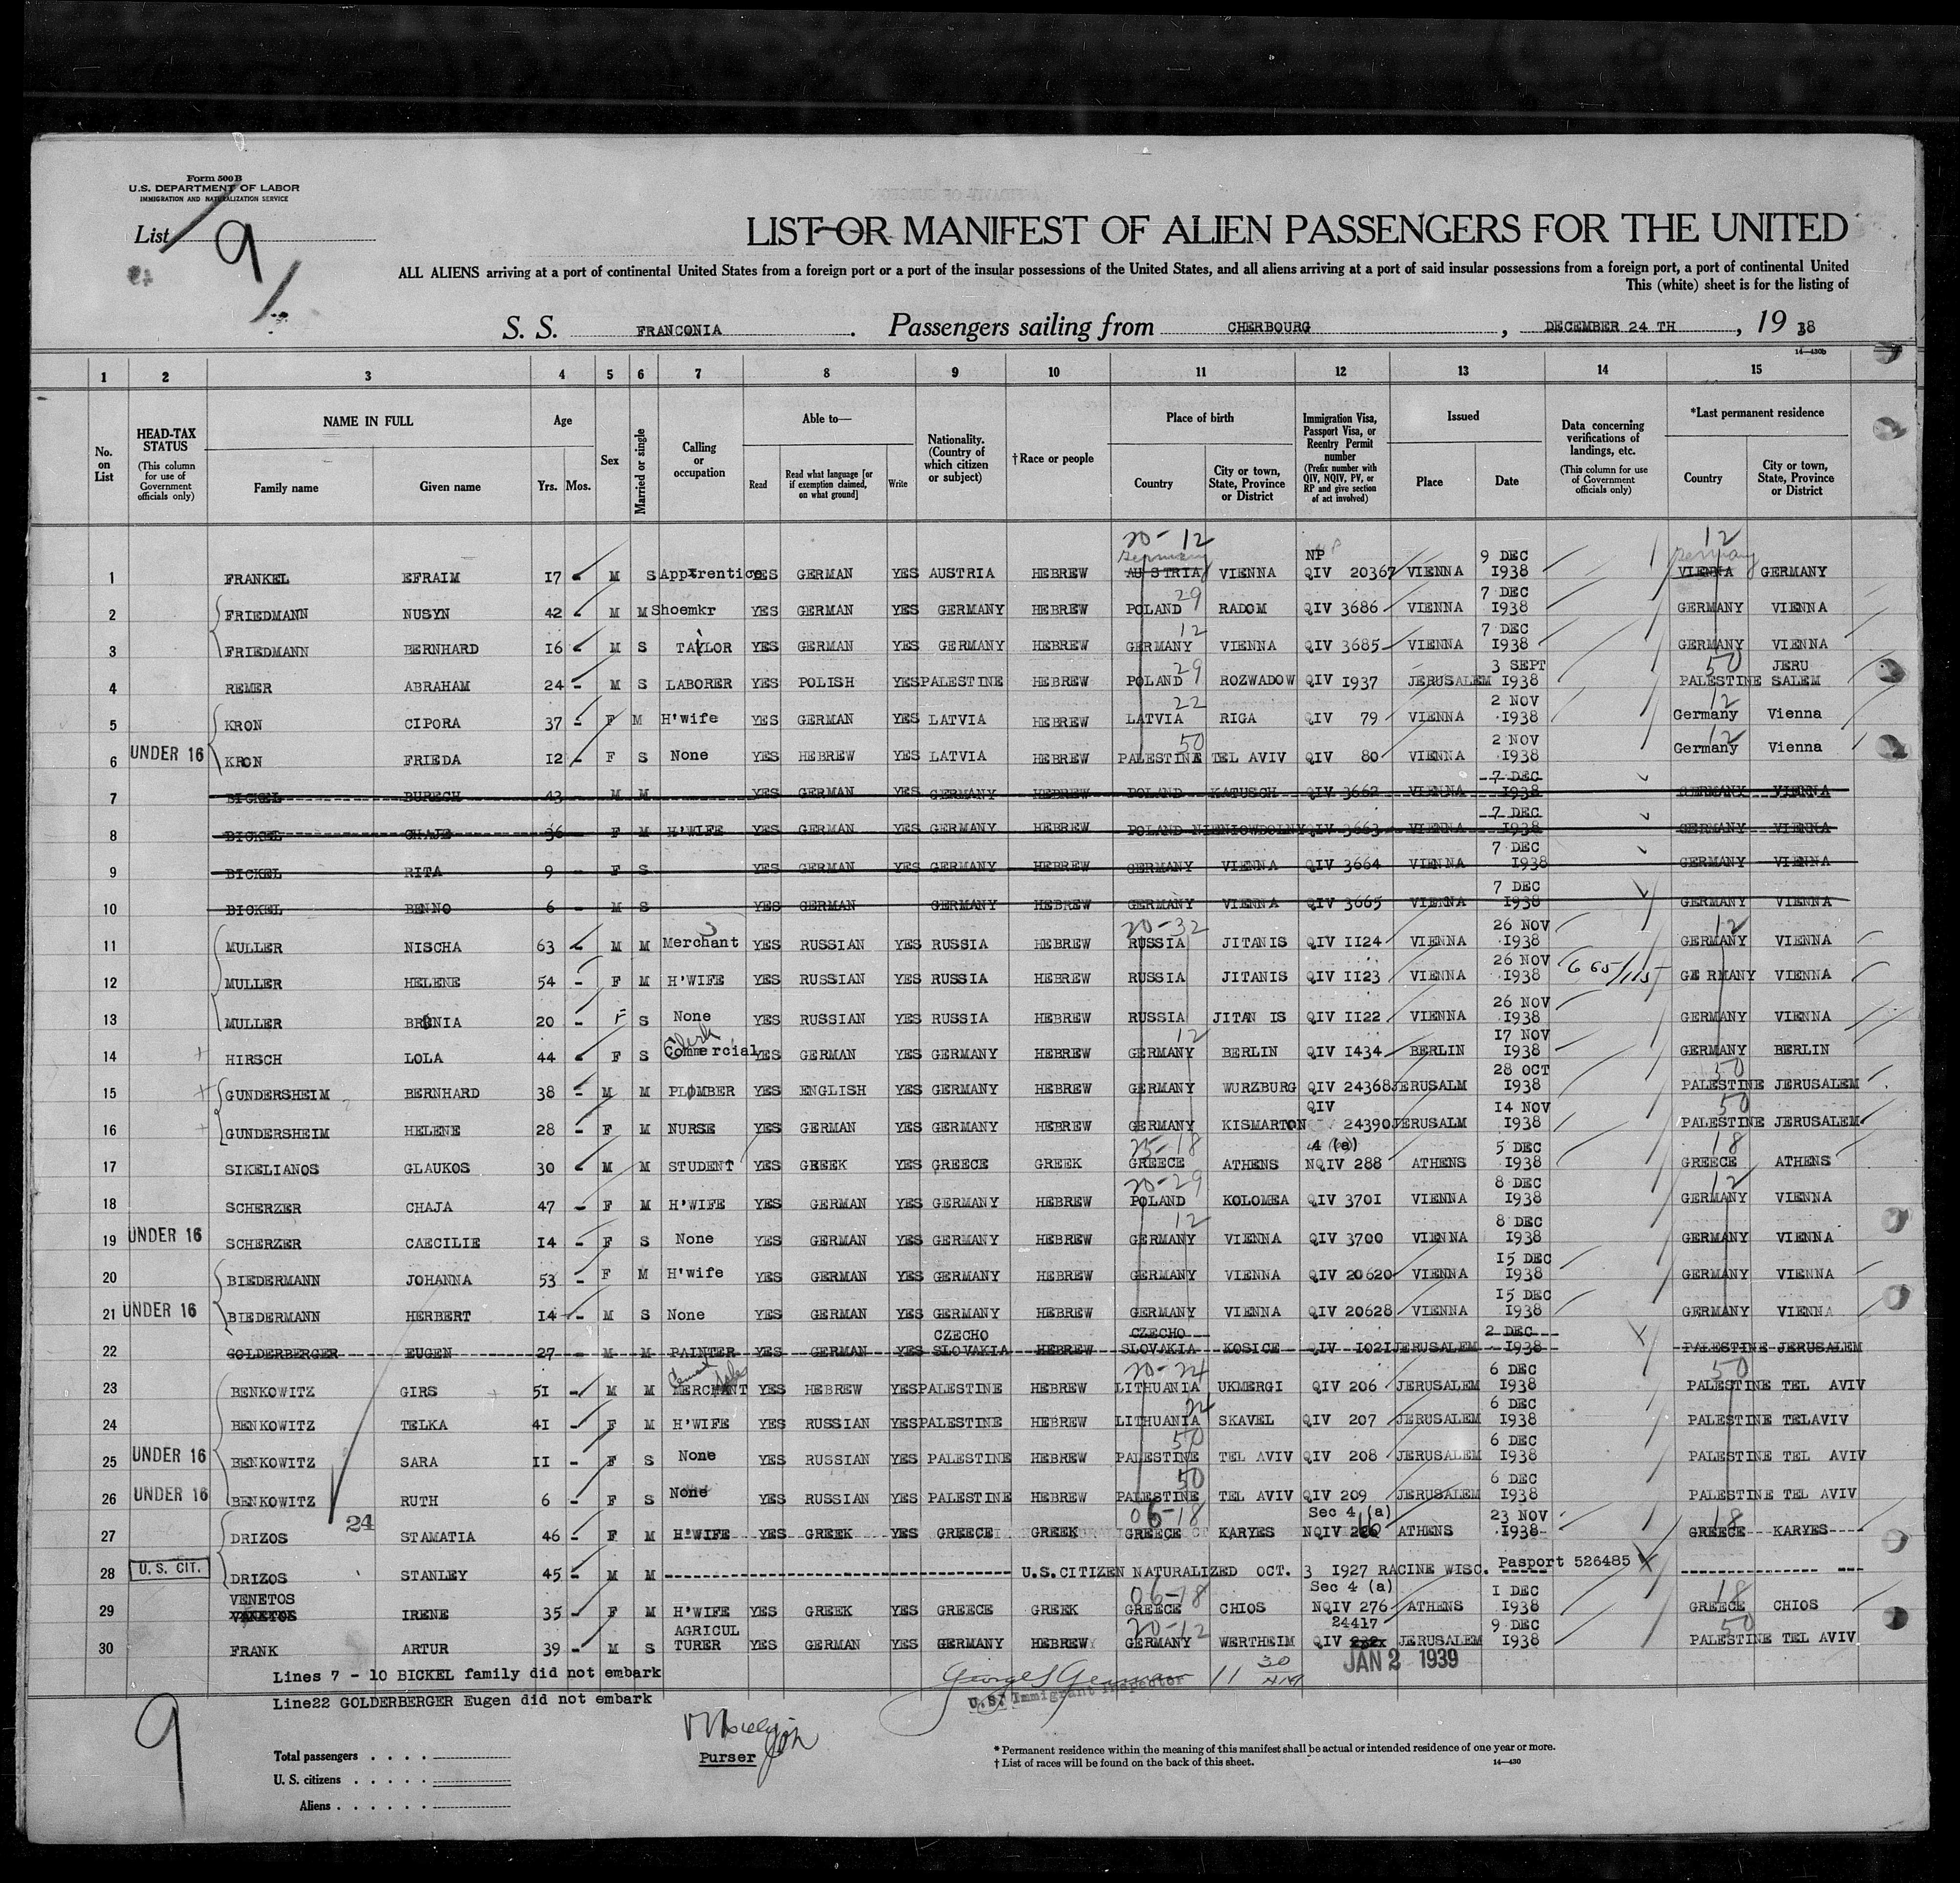 Form 500 B
U.S. DEPARTMENT OF LABOR
IMMIGRATION AND NATURALIZATION SERVICE
List 9
LIST OR MANIFEST OF ALIEN PASSENGERS FOR THE UNITED
ALL ALIENS arriving at a port of continental United States from a foreign port or a port of the insular possessions of the United States, and all aliens arriving at a port of said insular possessions from a foreign port, a port of continental United
This (white) sheet is for the listing of
S. S. FRANCONIA. Passengers sailing from CHERBOURG, DECEMBER 24 TH, 1938
14—430b
1 2 3 4 5 6 7 8 9 10 11 12 13 14 15
No. on List
HEAD-TAX STATUS (This column for use of Government officials only)
NAME IN FULL Family name Given name
Age Yrs. Mos.
Sex
Married or single
Calling or occupation
Able to— Read Read what language [or if exemption claimed, on what ground] Write
Nationality. (Country of which citizen or subject)
† Race or people
Place of birth Country City or town, State, Province or District
Immigration Visa, Passport Visa, or Reentry Permit number (Prefix number with QIV, NQIV, PV, or RP and give section of act involved)
Issued Place Date
Data concerning verifications of landings, etc. (This column for use of Government officials only)
*Last permanent residence Country City or town, State, Province or District
20-12 12
Germany NP 9 DEC Germany
1 FRANKEL EFRAIM 17 - M S Apprentice YES GERMAN YES AUSTRIA HEBREW AUSTRIA VIENNA QIV 20367 VIENNA 1938 VIENNA GERMANY
29 7 DEC
2 FRIEDMANN NUSYN 42 - M M Shoemkr YES GERMAN YES GERMANY HEBREW POLAND RADOM QIV 3686 VIENNA 1938 GERMANY VIENNA
12 7 DEC
3 FRIEDMANN BERNHARD 16 - M S TAYLOR YES GERMAN YES GERMANY HEBREW GERMANY VIENNA QIV 3685 VIENNA 1938 GERMANY VIENNA
29 3 SEPT 50 JERU
4 REMER ABRAHAM 24 - M S LABORER YES POLISH YES PALESTINE HEBREW POLAND ROZWADOW QIV 1937 JERUSALEM 1938 PALESTINE SALEM
22 2 NOV 12
5 KRON CIPORA 37 - F M H'wife YES GERMAN YES LATVIA HEBREW LATVIA RIGA QIV 79 VIENNA 1938 Germany Vienna
50 2 NOV 12
6 UNDER 16 KRON FRIEDA 12 - F S None YES HEBREW YES LATVIA HEBREW PALESTINE TEL AVIV QIV 80 VIENNA 1938 Germany Vienna
7 DEC
7 BICKEL BURECH 43 - M M YES GERMAN YES GERMANY HEBREW POLAND KATUSCH QIV 3662 VIENNA 1938 GERMANY VIENNA
7 DEC
8 BICKEL CHAJE 36 F M H'WIFE YES GERMAN YES GERMANY HEBREW POLAND NIENIOWDOLNY QIV 3663 VIENNA 1938 GERMANY VIENNA
7 DEC
9 BICKEL RITA 9 - F S YES GERMAN YES GERMANY HEBREW GERMANY VIENNA QIV 3664 VIENNA 1938 GERMANY VIENNA
7 DEC
10 BICKEL BENNO 6 - M S YES GERMAN GERMANY HEBREW GERMANY VIENNA QIV 3665 VIENNA 1938 GERMANY VIENNA
20-32 26 NOV 12
11 MULLER NISCHA 63 - M M Merchant YES RUSSIAN YES RUSSIA HEBREW RUSSIA JITANIS QIV 1124 VIENNA 1938 GERMANY VIENNA
26 NOV
12 MULLER HELENE 54 - F M H'WIFE YES RUSSIAN YES RUSSIA HEBREW RUSSIA JITANIS QIV 1123 VIENNA 1938 GERMANY VIENNA
26 NOV
13 MULLER BRONIA 20 - F S None YES RUSSIAN YES RUSSIA HEBREW RUSSIA JITANIS QIV 1122 VIENNA 1938 GERMANY VIENNA
Clerk 12 17 NOV
14 HIRSCH LOLA 44 - F S Commercial YES GERMAN YES GERMANY HEBREW GERMANY BERLIN QIV 1434 BERLIN 1938 GERMANY BERLIN
28 OCT 50
15 GUNDERSHEIM BERNHARD 38 - M M PLOMBER YES ENGLISH YES GERMANY HEBREW GERMANY WURZBURG QIV 24368 JERUSALM 1938 PALESTINE JERUSALEM
QIV 14 NOV 50
16 GUNDERSHEIM HELENE 28 - F M NURSE YES GERMAN YES GERMANY HEBREW GERMANY KISMARTON 24390 JERUSALM 1938 PALESTINE JERUSALEM
25-18 4 (a) 5 DEC 18
17 SIKELIANOS GLAUKOS 30 - M M STUDENT YES GREEK YES GREECE GREEK GREECE ATHENS NQIV 288 ATHENS 1938 GREECE ATHENS
20-29 8 DEC 12
18 SCHERZER CHAJA 47 - F M H'WIFE YES GERMAN YES GERMANY HEBREW POLAND KOLOMEA QIV 3701 VIENNA 1938 GERMANY VIENNA
12 8 DEC
19 UNDER 16 SCHERZER CAECILIE 14 - F S None YES GERMAN YES GERMANY HEBREW GERMANY VIENNA QIV 3700 VIENNA 1938 GERMANY VIENNA
15 DEC
20 BIEDERMANN JOHANNA 53 - F M H'wife YES GERMAN YES GERMANY HEBREW GERMANY VIENNA QIV 20620 VIENNA 1938 GERMANY VIENNA
15 DEC
21 UNDER 16 BIEDERMANN HERBERT 14 - M S None YES GERMAN YES GERMANY HEBREW GERMANY VIENNA QIV 20628 VIENNA 1938 GERMANY VIENNA
CZECHO CZECHO 2 DEC
22 GOLDERBERGER EUGEN 27 - M M PAINTER YES GERMAN YES SLOVAKIA HEBREW SLOVAKIA KOSICE QIV 1021 JERUSALEM 1938 PALESTINE JERUSALEM
20-24 6 DEC 50
23 BENKOWITZ GIRS 51 - M M MERCHANT YES HEBREW YES PALESTINE HEBREW LITHUANIA UKMERGI QIV 206 JERUSALEM 1938 PALESTINE TEL AVIV
24 6 DEC
24 BENKOWITZ TELKA 41 - F M H'WIFE YES RUSSIAN YES PALESTINE HEBREW LITHUANIA SKAVEL QIV 207 JERUSALEM 1938 PALESTINE TELAVIV
50 6 DEC
25 UNDER 16 BENKOWITZ SARA 11 - F S None YES RUSSIAN YES PALESTINE HEBREW PALESTINE TEL AVIV QIV 208 JERUSALEM 1938 PALESTINE TEL AVIV
50 6 DEC
26 UNDER 16 BENKOWITZ RUTH 6 - F S None YES RUSSIAN YES PALESTINE HEBREW PALESTINE TEL AVIV QIV 209 JERUSALEM 1938 PALESTINE TEL AVIV
24 06-18 Sec 4 (a) 23 NOV 18
27 DRIZOS STAMATIA 46 - F M H'WIFE YES GREEK YES GREECE GREEK GREECE KARYES NQIV ATHENS 1938 GREECE KARYES
28 U. S. CIT. DRIZOS STANLEY 45 - M M U.S.CITIZEN NATURALIZED OCT. 3 1927 RACINE WISC. Pasport 526485
VENETOS 06-18 Sec 4 (a) 1 DEC 18
29 IRENE 35 - F M H'WIFE YES GREEK YES GREECE GREEK GREECE CHIOS NQIV 276 ATHENS 1938 GREECE CHIOS
AGRICUL 20-12 24417 9 DEC 50
30 FRANK ARTUR 39 - M S TURER YES GERMAN YES GERMANY HEBREW GERMANY WERTHEIM QIV JERUSALEM 1938 PALESTINE TEL AVIV
JAN 2 1939
Lines 7 - 10 BICKEL family did not embark
11 30 AM
U.S. Immigrant Inspector
Line22 GOLDERBERGER Eugen did not embark
9
Purser
Total passengers . . . .
U. S. citizens . . . . .
Aliens . . . . . .
* Permanent residence within the meaning of this manifest shall be actual or intended residence of one year or more.
† List of races will be found on the back of this sheet.
14—430